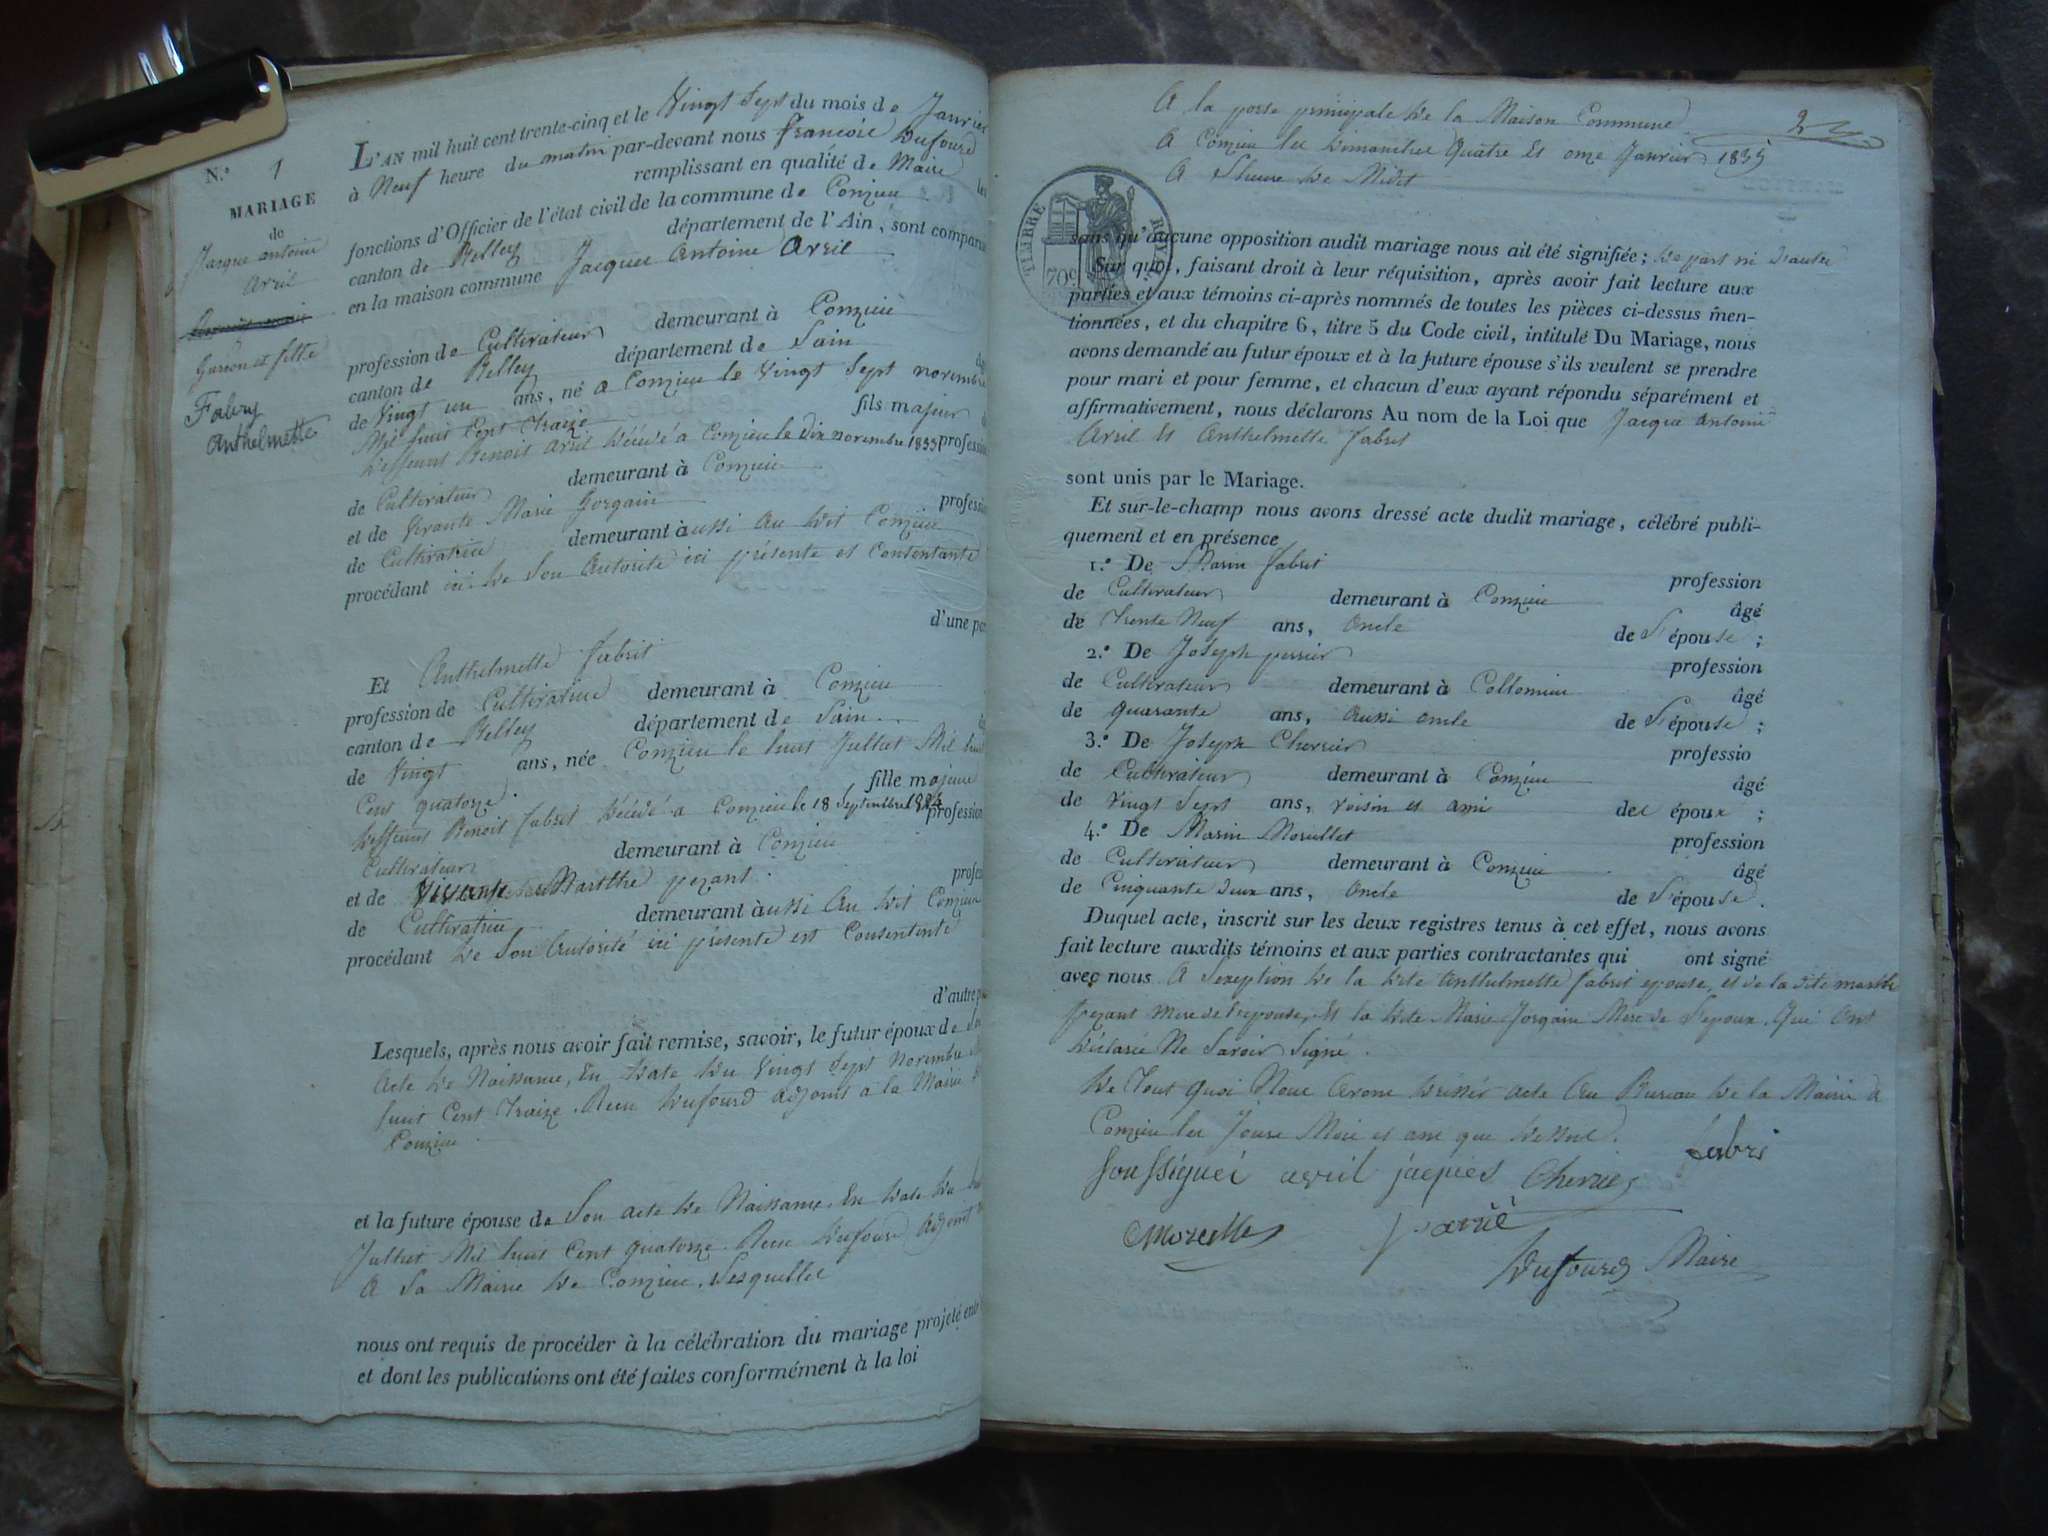 N.° 1
MARIAGE
de
Jacque antoine
Avril
garcon et fille
Fabry
Anthelmette
L'AN mil huit cent trente-cinq et le Vingt Sept du mois de Janvier
à Neuf heure du matin par-devant nous francois Dufourd
remplissant en qualité de Maire les
fonctions d'Officier de l'état civil de la commune de Conzieu
canton de Belley département de l'Ain, sont comparu
en la maison commune Jacques Antoine Avril
profession de Cultivateur demeurant à Conzieu
canton de Belley département de Lain
de Vingt un ans, né a Conzieu le Vingt Sept novembre
Mil huit Cent Traize fils majeur d
Deffeunt Benoit Avril Décédé a Conzieu le dix novembre 1833 professio
de Cultivateur demeurant à Conzieu
et de Vivante Marie Gorgain professi
de Cultivatrice demeurant à aussi Au Dit Conzieu
procédant ici De Son Autorité ici présente et Consentante
d'une par
Et Anthelmette Fabrit
profession de Cultivatrice demeurant à Conzieu
canton de Belley département de Lain
de Vingt ans, née Conzieu le huit Julliet Mil huit
Cent quatorze. fille majeure
Deffeunt Benoit Fabrit Décédé a Conzieu le 18 Septembre 1824 profession
Cultivateur demeurant à Conzieu
et de Vivante Marthe pezant. profes
de Cultivatrice demeurant à aussi Au Dit Conzieu
procédant De Son Autorité ici présente et Consentente
d'autre p
Lesquels, après nous avoir fait remise, savoir, le futur époux de Son
Acte De Naissance, En Date Du Vingt Sept Novembre
huit Cent Traize. Recu Dufourd adjoint a la Mairie
Conzieu.
et la future épouse de Son acte De Naissance, En Date Du
Julliet Mil huit Cent quatorze. Recu Dufourd adjoint
A La Mairie De Conzieu, Lesquelles
nous ont requis de procéder à la célébration du mariage projeté entr
et dont les publications ont été faites conformément à la loi
A la porte principale De la Maison Commune
A Conzieu les Dimanches Quatre Et onze Janvier 1835
A Lheure De Midit
2
TIMBRE ROYAL
70c
sans qu'aucune opposition audit mariage nous ait été signifiée; De part ni D'autre
Sur quoi, faisant droit à leur réquisition, après avoir fait lecture aux
parties et aux témoins ci-après nommés de toutes les pièces ci-dessus men-
tionnées, et du chapitre 6, titre 5 du Code civil, intitulé Du Mariage, nous
avons demandé au futur époux et à la future épouse s'ils veulent se prendre
pour mari et pour femme, et chacun d'eux ayant répondu séparément et
affirmativement, nous déclarons Au nom de la Loi que Jacque Antoine
Avril Et Anthelmette Fabrit
sont unis par le Mariage.
Et sur-le-champ nous avons dressé acte dudit mariage, célébré publi-
quement et en présence
1.° De Marin Fabrit profession
de Cultivateur demeurant à Conzieu âgé
de Trente Neuf ans, Oncle de L'épouse;
2.° De Joseph perrier profession
de Cultivateur demeurant à Collomieu âgé
de quarante ans, Aussi oncle de L'épouse;
3.° De Joseph Chervier professio
de Cultivateur demeurant à Conzieu âgé
de Vingt Sept ans, voisin et ami des époux;
4.° De Marin Morellet profession
de Cultivateur demeurant à Conzieu âgé
de Cinquante deux ans, Oncle de L'épouse.
Duquel acte, inscrit sur les deux registres tenus à cet effet, nous avons
fait lecture auxdits témoins et aux parties contractantes qui ont signé
avec nous A Lexeption De la Dite Anthelmette fabrit epouse, et de la dite marthe
pezant mere de l'epouse, Et la Dite Marie Gorgain Mere de L'epoux. Qui Ont
Déclarée Ne Savoir Signé.
De Tout quoi Nous Avons Dréssér acte Au Bureau De la Mairie A
Conzieu les Jours Mois et ans que Dessus.
Soussignéi avril jacques Chervier fabri
Morelles avril
Dufourd Maire